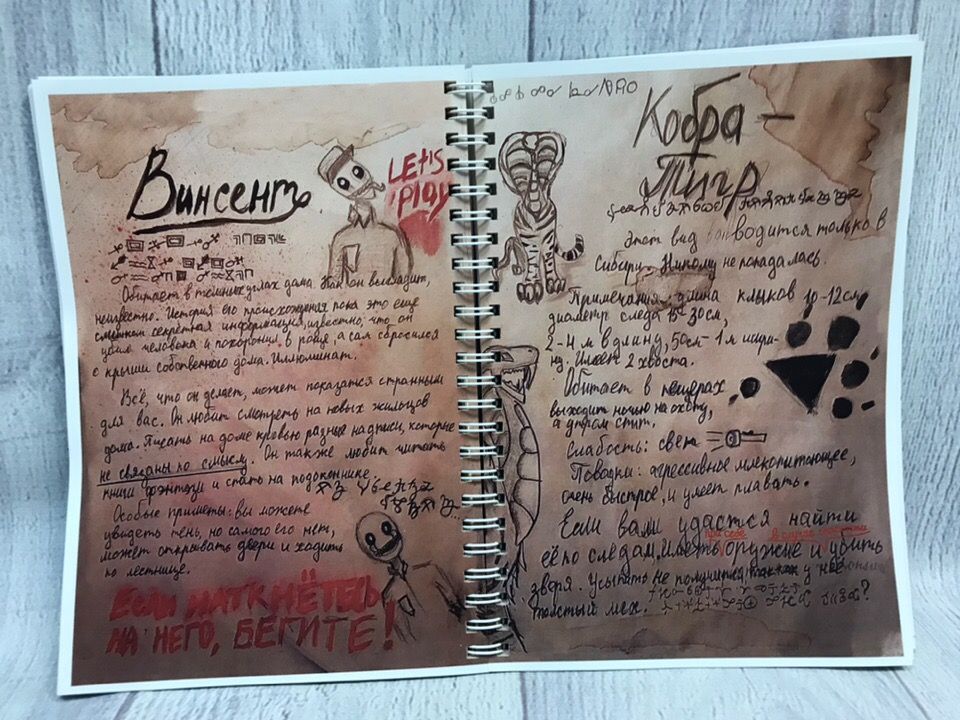 Винсент
LET'S
PLAY
Обитает в тёмных углах дома. Как он выглядит,
неизвестно. История его происхождения пока это ещё
секретная информация, известно, что он
убил человека и похоронил в раще, а сам сбросился
с крыши собственного дома. Иллюминат.
Всё, что он делает, может показатся странным
для вас. Он любит смотреть на новых жильцов
дома. Писать на доме кровью разные надписи, которые
не связаны по смыслу. Он также любит читать
книги фэнтези и спать на подоконнике.
Особые приметы: вы можете
увидеть тень, но самого его нет,
может открывать двери и ходить
по лестнице.
ЕСЛИ НАТКНЁТЕСЬ
НА НЕГО, БЕГИТЕ!
Кобра-
Тигр
Этот вид водится только в
Сибири. Никому не попадалась.
Примечания: длина клыков 10-12см,
диаметр следа 15-30см,
2-4 м в длину, 50см-1 м шири-
ну. Имеет 2 хвоста.
Обитает в пещерах
выходит ночью на охоту,
а утром спит.
Слабость: свет
Поводки: агрессивное млекопитающее,
очень быстрое, и умеет плавать.
Если вам удастся найти
при себе
её по следам, иметь оружие и убить
зверя. Усыпить не получится, у неё
толстый мех.